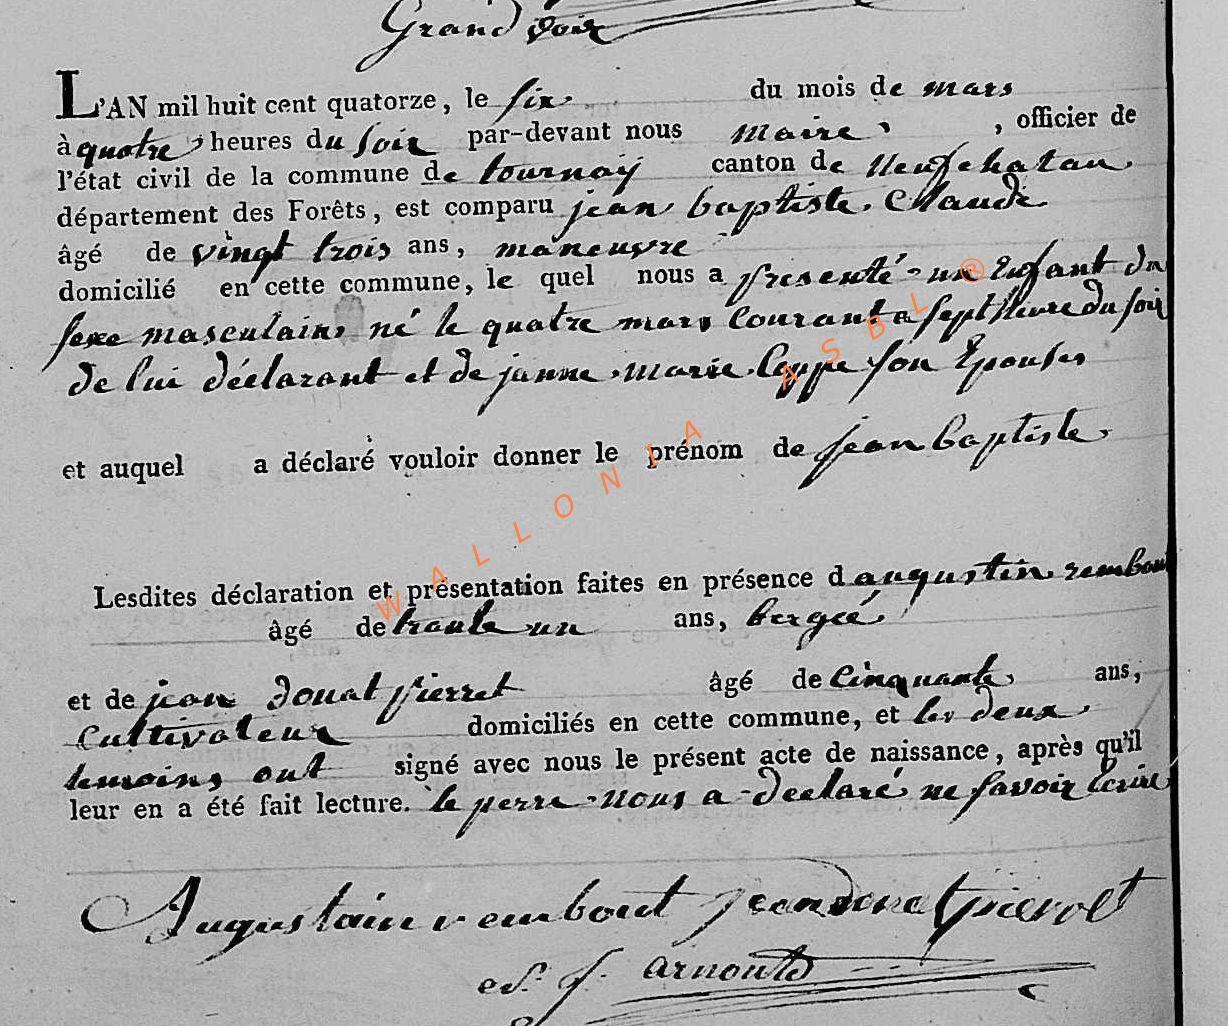 Grandvoir
L'AN mil huit cent quatorze, le six du mois de mars
à quatre heures du soir par-devant nous maire, officier de
l'état civil de la commune de tournay canton de Neufchatau
département des Forêts, est comparu jean baptiste Claude
âgé de vingt trois ans, maneuvre
domicilié en cette commune, le quel nous a presenté un Enfant du
sexe masculain né le quatre mars Courant a sept heure du soir
de lui déclarant et de janne marie Coppe son Epouse
et auquel a déclaré vouloir donner le prénom de jean baptiste
Lesdites déclaration et présentation faites en présence d augustin rembout
âgé de trante un ans, bergée
et de jean donat pierret âgé de Cinquante ans,
Cultivateur domiciliés en cette commune, et les deux
temoins ont signé avec nous le présent acte de naissance, après qu'il
leur en a été fait lecture. le perre nous a declaré ne savoir Ecrire
Augustain rembout jean donat pierret
J. arnould
WALLONIA ASBL ®